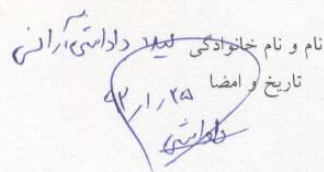 نام و نام خانوادگی لیلا داداشی آرانی
تاریخ و امضا ۹۳/۱/۲۵
داداشی